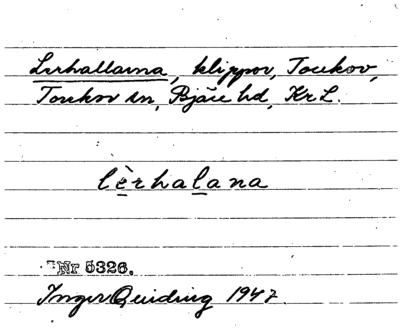 Lerhallarna, klippor, Torekov,
Torekov sn, Bjäre hd, Kr L.
lèrhalana
Nr 5326.
Inger Quiding 1947.